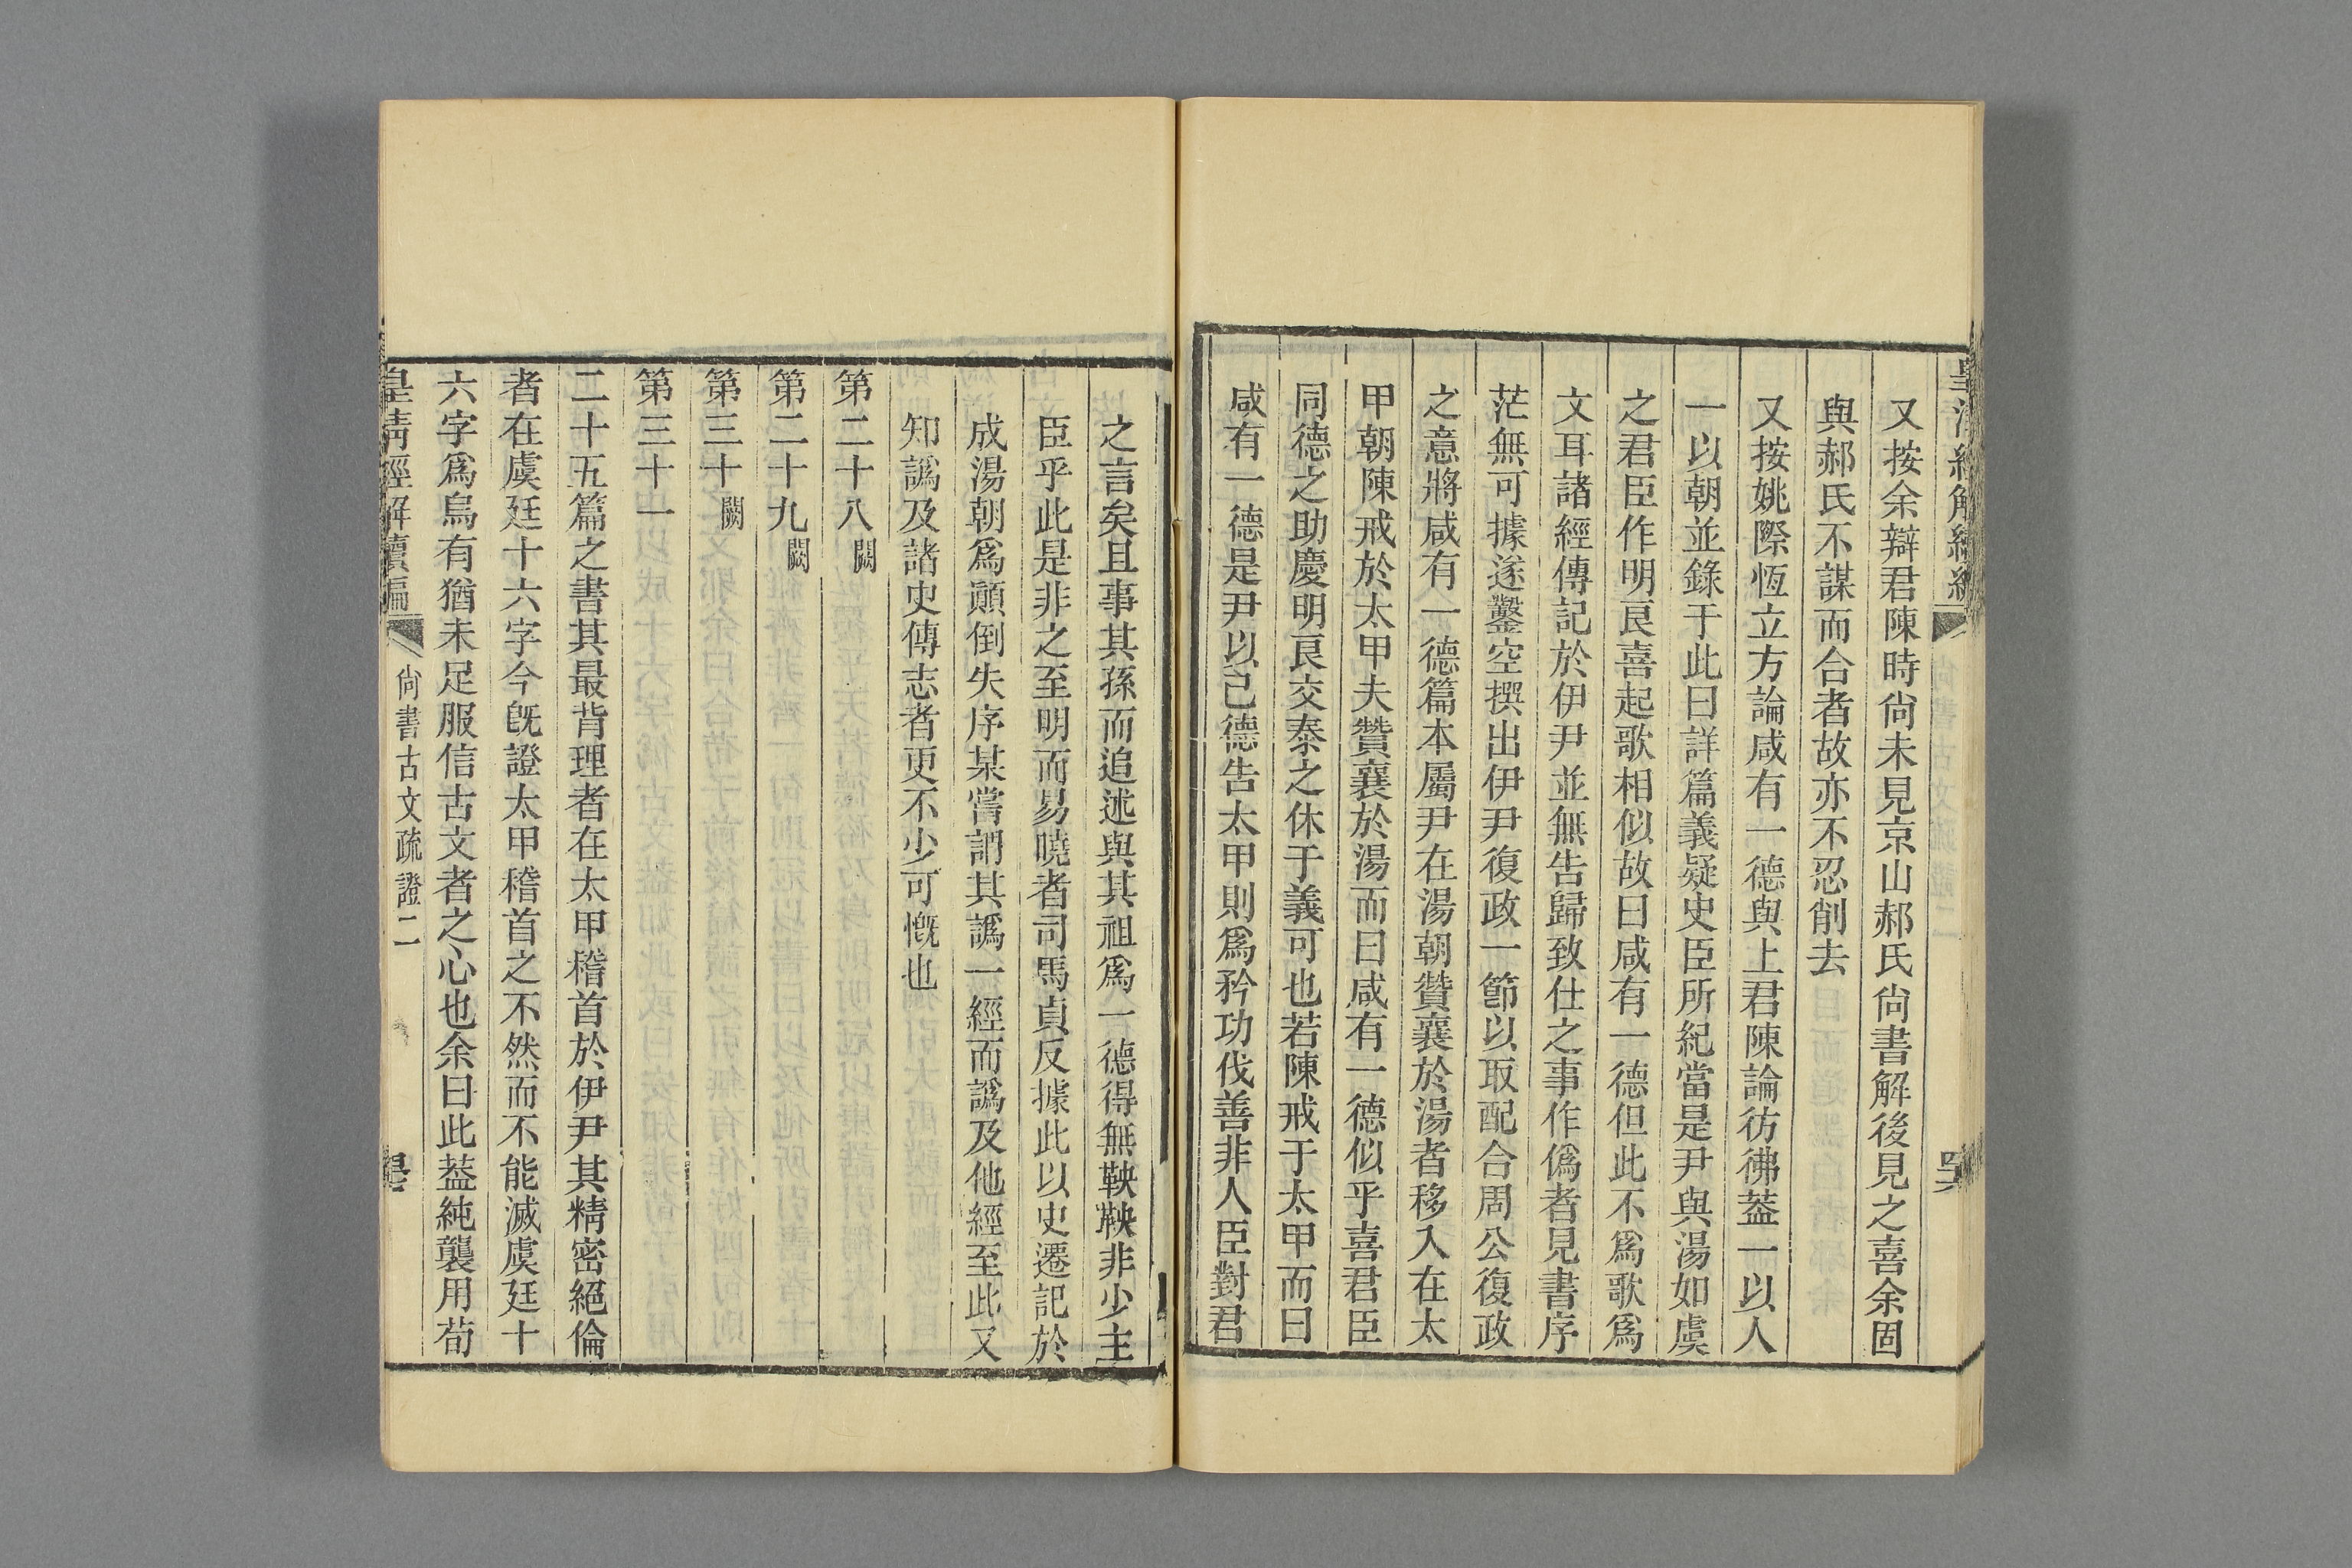 又按余辯君陳時尙未見京山郝氏尙書解後見之喜余固
與郝氏不謀而合者故亦不忍削去
又按姚際恆立方論咸有一德與上君陳論彷彿葢一以人
一以朝並錄于此曰詳篇義疑史臣所紀當是尹與湯如虞
之君臣作明良喜起歌相似故曰咸有一德但此不爲歌爲
文耳諸經傳記於伊尹並無告歸致仕之事作僞者見書序
茫無可據遂鑿空撰出伊尹復政一節以取配合周公復政
之意將咸有一德篇本屬尹在湯朝贊襄於湯者移入在太
甲朝陳戒於太甲夫贊襄於湯而曰咸有一德似乎喜君臣
同德之助慶明良交泰之休于義可也若陳戒于太甲而曰
咸有一德是尹以己德告太甲則爲矜功伐善非人臣對君
之言矣且事其孫而追述與其祖爲一德得無鞅鞅非少主
臣乎此是非之至明而易曉者司馬貞反據此以史遷記於
成湯朝爲顚倒失序某嘗謂其譌一經而譌及他經至此又
知譌及諸史傳志者更不少可慨也
第二十八闕
第二十九闕
第三十闕
第三十一
二十五篇之書其最背理者在太甲稽首於伊尹其精密絕倫
者在虞廷十六字今旣證太甲稽首之不然而不能滅虞廷十
六字爲烏有猶未足服信古文者之心也余曰此葢純襲用荀
皇淸經解續編
尙書古文疏證二